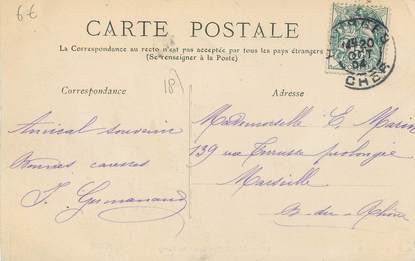 6€
CARTE POSTALE
La Correspondance au recto n'est pas acceptée par tous les pays étrangers
(Se renseigner à la Poste)
Correspondance
18
Adresse
Amical souvenir
Bonnes caresses
Mademoiselle E. Marin
139 rue Terrusse prolongée
Marseille
B-du-Rhône
20
CHER